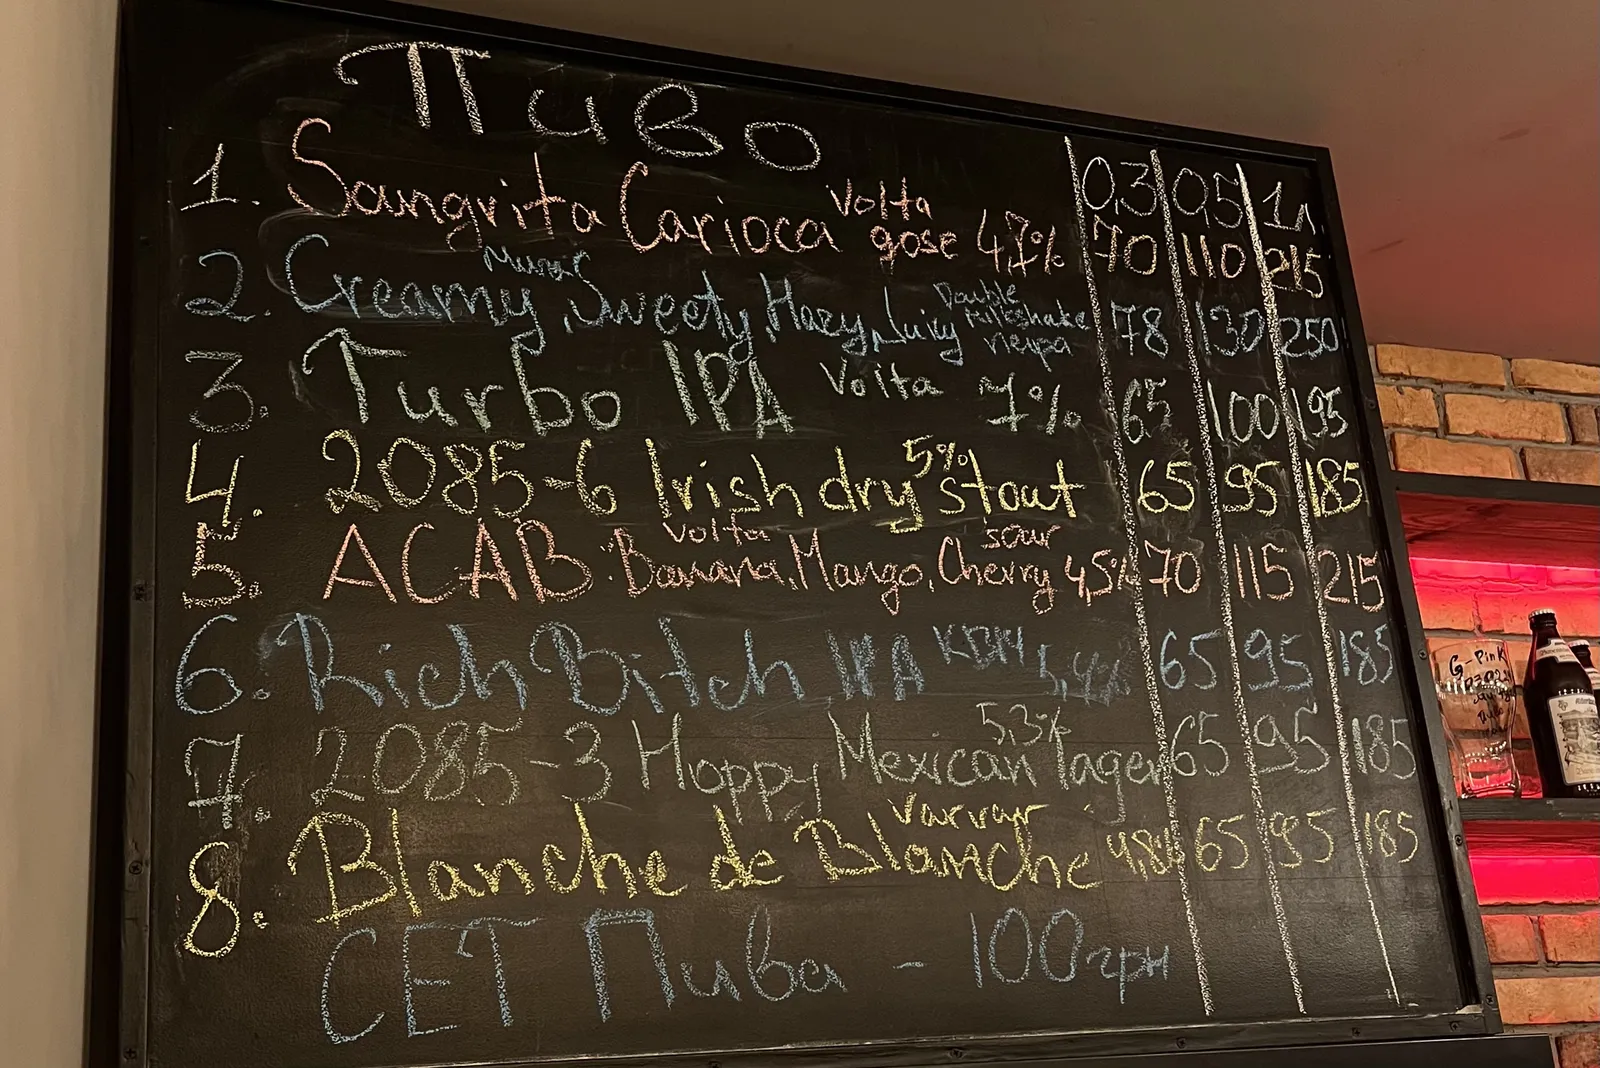 Пиво
0,3 0,5 1л
1. Sangrita Carioca Volta gose 4,7% 70 110 215
2. Creamy, Sweety, Hazy, Juicy Double Milkshake 78 130 250
3. Turbo IPA Volta 7% 65 100 195
4. 2085-6 Irish dry stout 5% 65 95 185
5. ACAB: Volta Banana, Mango, Cherry sour 4,5% 70 115 215
6. Rich Bitch IPA 5,4% 65 95 185
7. 2085-3 Hoppy Mexican lager 5,3% 65 95 185
8. Blanche de Blanche Varvar 4,8% 65 95 185
СЕТ Пива - 100грн
G-Pink